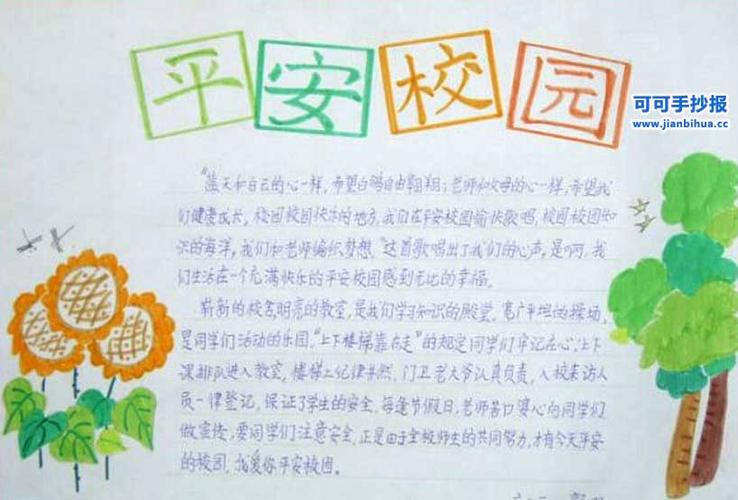 平安校园
可可手抄报
www.jianbihua.cc
“蓝天和白云的心一样,希望白鸽自由翱翔;老师和父母的心一样,希望我
们健康成长,校园校园快乐的地方,我们在平安校园愉快歌唱,校园校园知
识的海洋,我们和老师编织梦想。”这首歌唱出了我们的心声,是啊,我
们生活在一个充满快乐的平安校园感到无比的幸福。
崭新的校舍明亮的教室,是我们学习知识的殿堂,宽广平坦的操场,
是同学们活动的乐园,“上下楼梯靠右走”的规定同学们牢记在心,上下
课排队进入教室,楼梯上纪律井然,门卫老大爷认真负责,入校来访人
员一律登记,保证了学生的安全,每逢节假日,老师苦口婆心向同学们
做宣传,要同学们注意安全,正是由于全校师生的共同努力,才有今天平安
的校园,我爱你平安校园。